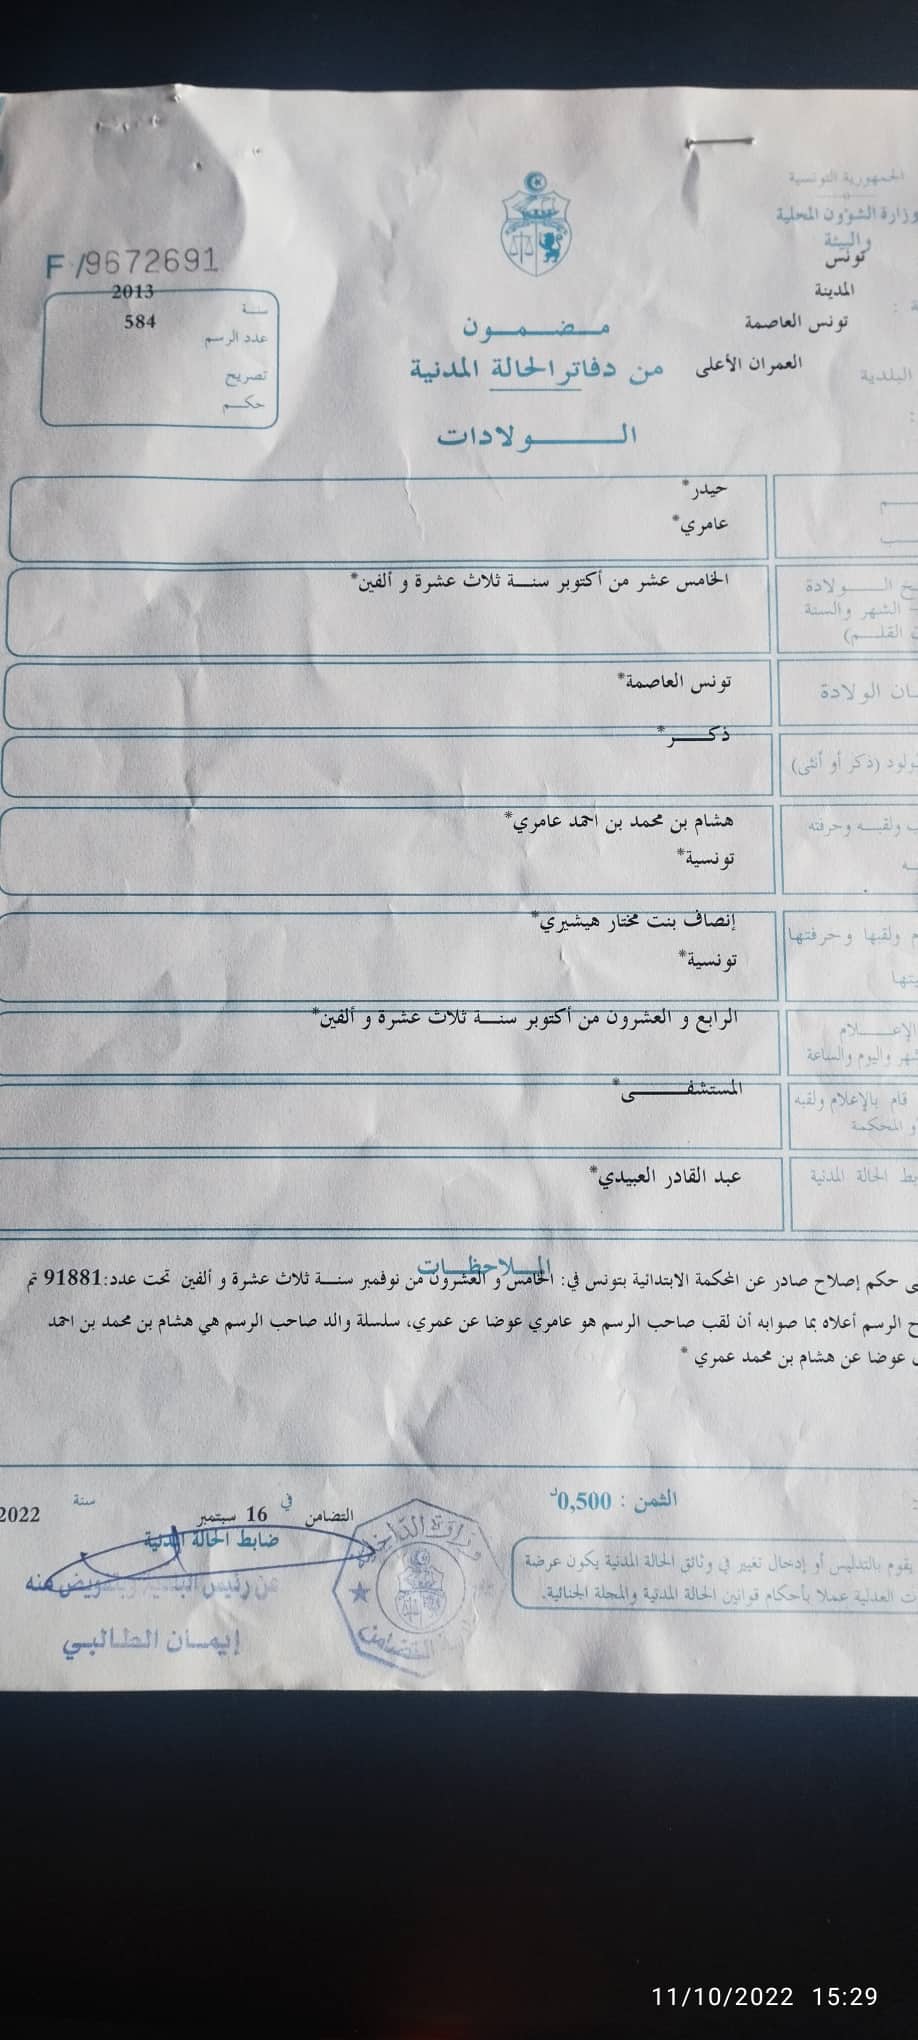 الجمهورية التونسية
وزارة الشؤون المحلية
والبيئة
تونس
المدينة
تونس العاصمة
البلدية
العمران الأعلى
F /9672691
سنة 2013
عدد الرسم 584
تصريح
حكم
مضمون
من دفاتر الحالة المدنية
الولادات
حيدر*
عامري*
الولادة
الشهر والسنة
القلم)
الخامس عشر من أكتوبر سنة ثلاث عشرة و ألفين*
الولادة
تونس العاصمة*
(ذكر أو أنثى)
ذكر*
ولقبه وحرفته
هشام بن محمد بن احمد عامري*
تونسية*
ولقبها وحرفتها
إنصاف بنت مختار هيشيري*
تونسية*
واليوم والساعة
الرابع و العشرون من أكتوبر سنة ثلاث عشرة و ألفين*
قام بالإعلام ولقبه
و المحكمة
المستشفى*
الحالة المدنية
عبد القادر العبيدي*
الملاحظات
حكم إصلاح صادر عن المحكمة الابتدائية بتونس في: الخامس و العشرون من نوفمبر سنة ثلاث عشرة و ألفين تحت عدد:91881 تم
الرسم أعلاه بما صوابه أن لقب صاحب الرسم هو عامري عوضا عن عمري، سلسلة والد صاحب الرسم هي هشام بن محمد بن احمد
عوضا عن هشام بن محمد عمري *
الثمن : 0,500د
التضامن في 16 سبتمبر سنة 2022
ضابط الحالة المدنية
عن رئيس البلدية وبتفويض منه
إيمان الطالبي
وزارة الداخلية
التضامن
يقوم بالتدليس أو إدخال تغيير في وثائق الحالة المدنية يكون عرضة
العدلية عملا بأحكام قوانين الحالة المدنية والمجلة الجنائية.
11/10/2022 15:29